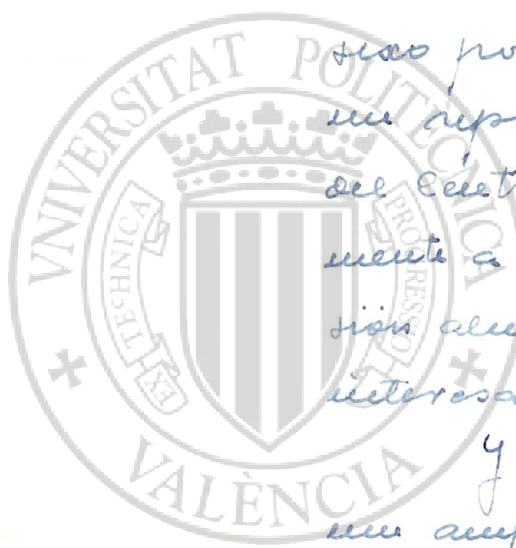 VNIVERSITAT POLITÈCNICA
VALÈNCIA
EX TECHNICA PROGRESSO
sexo po
un rep
del Cent
mente a
sión alu
interesa
y
un amp